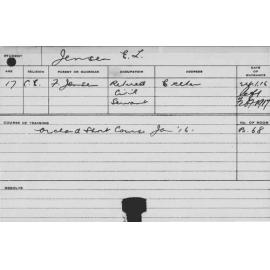 STUDENT
Jensen E. L.
AGE RELIGION PARENT OR GUARDIAN OCCUPATION ADDRESS DATE OF ISSUANCE
17 C.E. F. Jensen Retired
Civil
Servant
COURSE OF TRAINING No. OF ROOM
Orchard Short Course Jan '16. B. 68
RESULTS